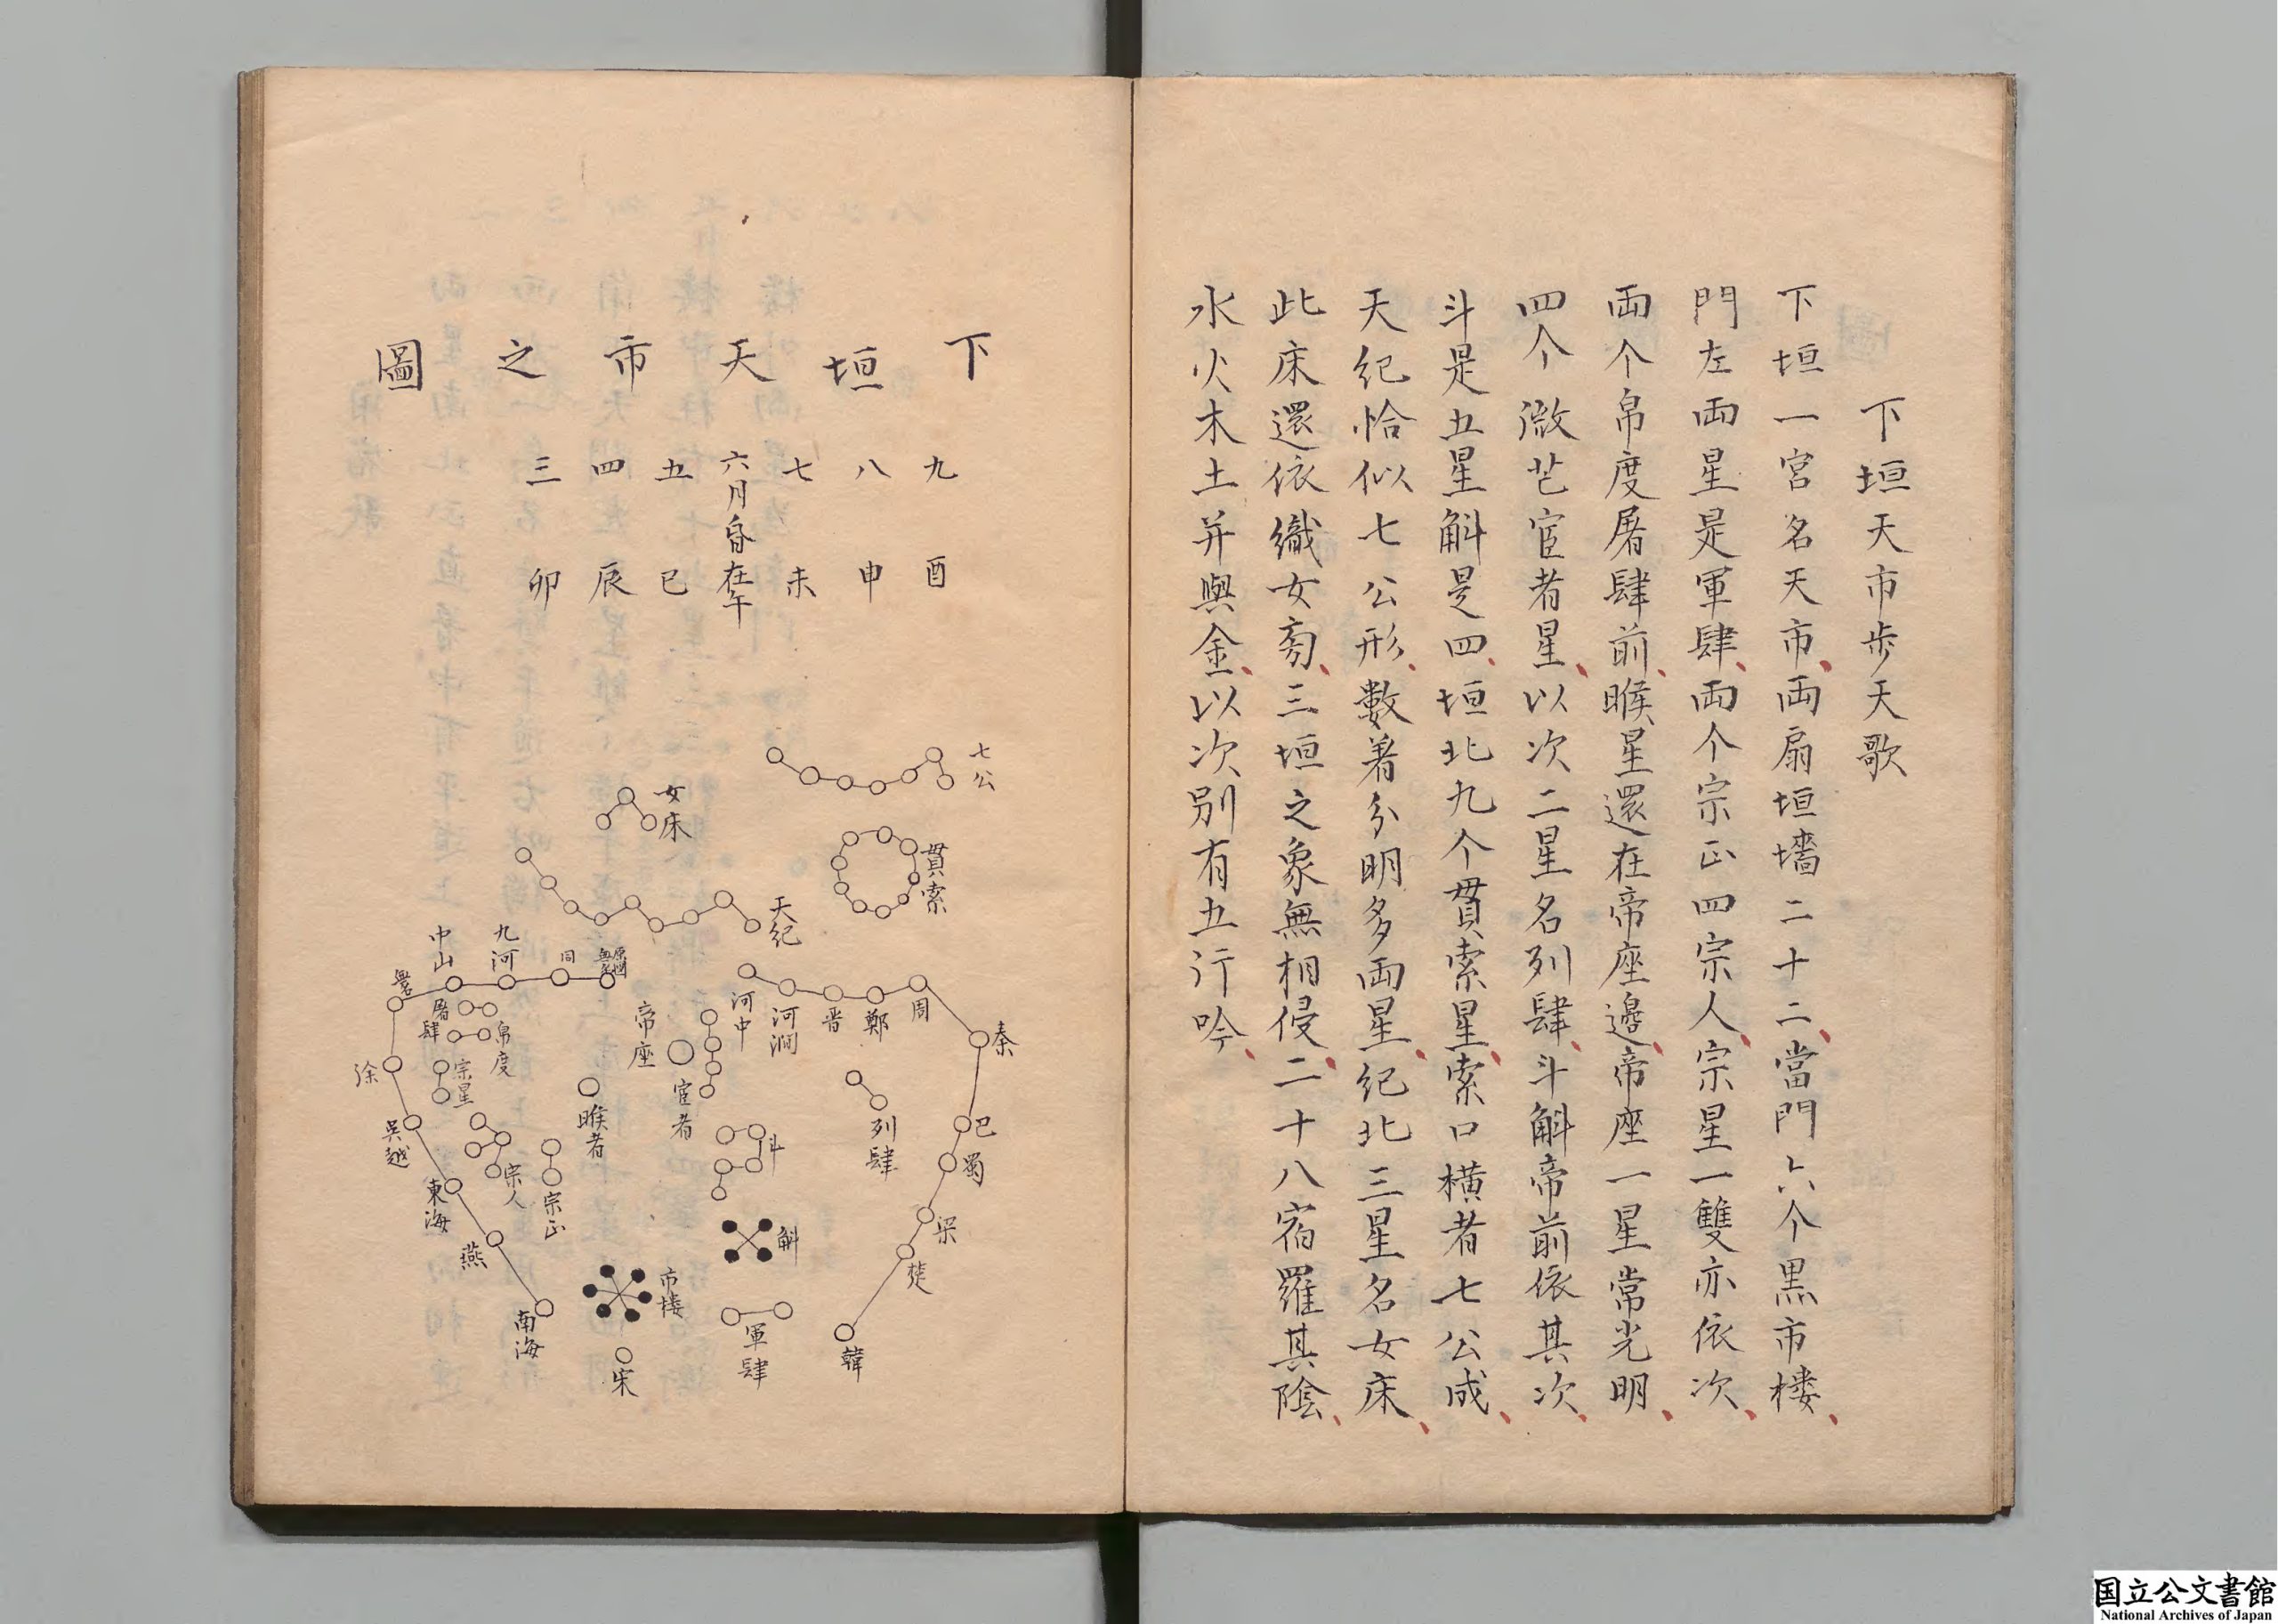 下垣天市歩天歌
下垣一宮名天市両扇垣墻二十二當門六个黒市楼
門左両星是軍肆両个宗正四宗人宗星一雙亦依次
両个帛度屠肆前睺星還在帝座邊帝座一星常光明
四个微芒宦者星以次二星名列肆斗斛帝前依其次
斗是五星斛是四垣北九个貫索星索口横者七公成
天紀恰似七公形數著分明多両星紀北三星名女床
此床還依織女旁三垣之象無相侵二十八宿羅其陰
水火木土并與金以次別有五行吟
下垣天市之圖
九 酉
八 申
七 未
六月昏在午
五 巳
四 辰
三 卯
七公
女床
貫索
天紀
中山
九河
屠肆
帛度
宗星
徐
吳越
東海
燕
南海
宗人
宗正
睺者
帝座
宦者
河中
河澗
晋
鄭
周
秦
巴
蜀
梁
楚
韓
列肆
斗
斛
市楼
軍肆
宋
国立公文書館
National Archives of Japan